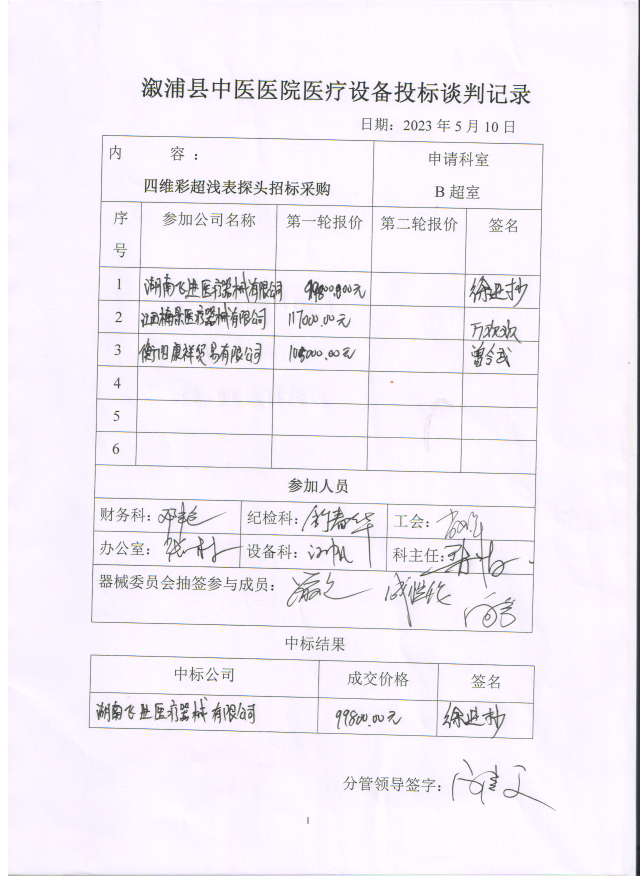 溆浦县中医医院医疗设备投标谈判记录
日期：2023 年 5 月 10 日
内 容 ： 申请科室
四维彩超浅表探头招标采购 B 超室
序号 参加公司名称 第一轮报价 第二轮报价 签名
1 湖南飞进医疗器械有限公司 99800.00元 徐进抄
2 江西梅景医疗器械有限公司 117000.00元 万欢欢
3 衡阳康祥贸易有限公司 105000.00元
4
5
6
参加人员
财务科： 纪检科： 工会：
办公室： 设备科： 科主任：
器械委员会抽签参与成员：
中标结果
中标公司 成交价格 签名
湖南飞进医疗器械有限公司 99800.00元 徐进抄
分管领导签字：
1